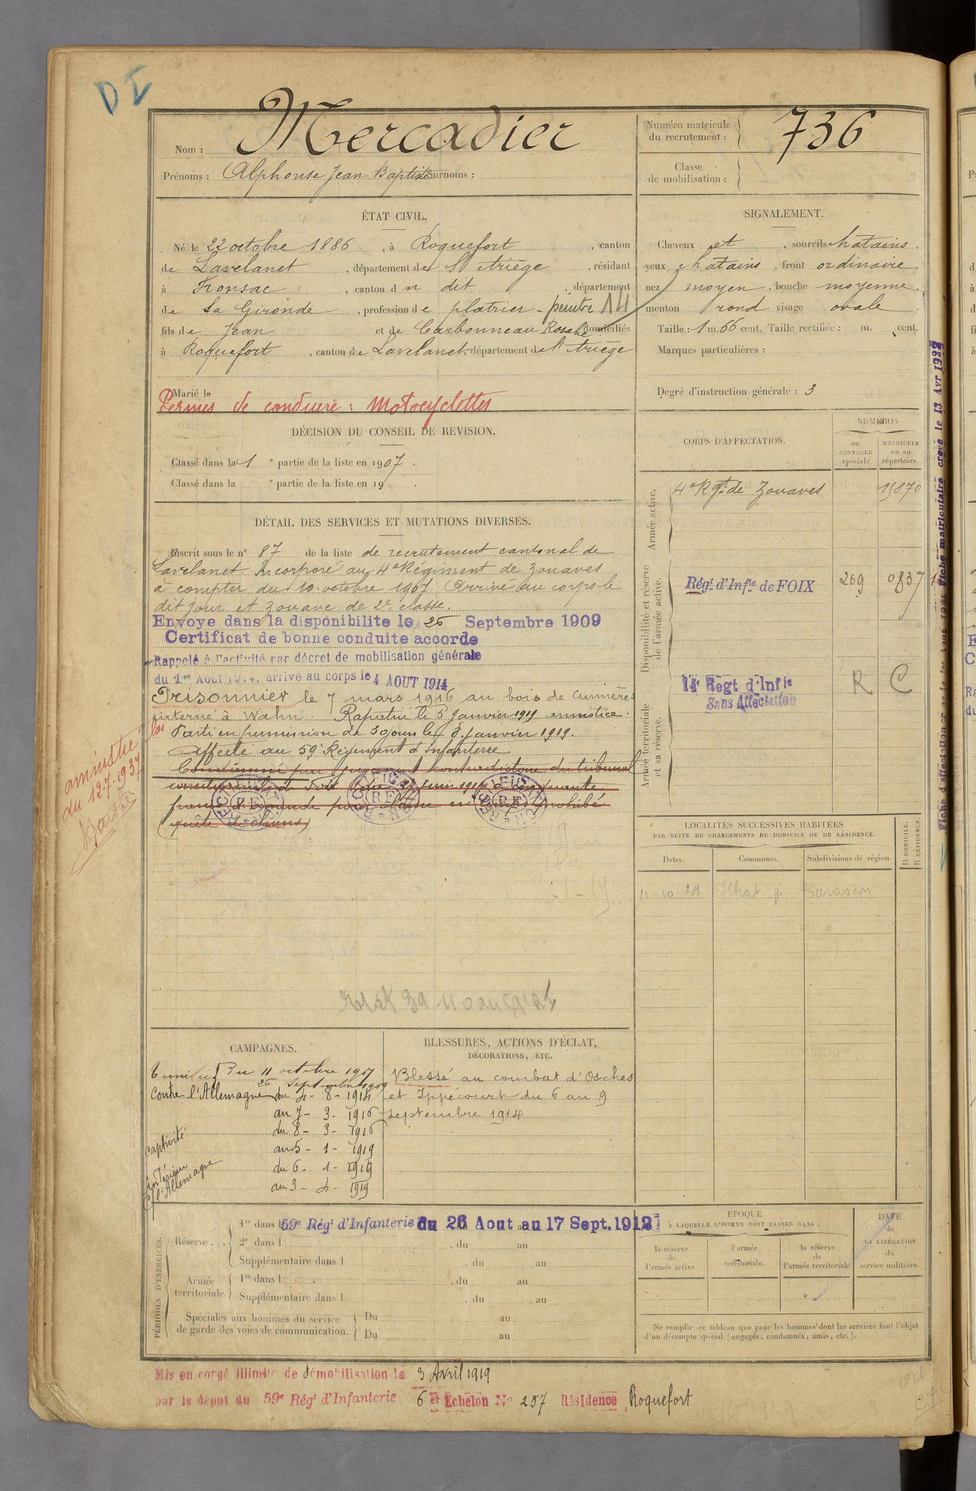 DI
Nom : Mercadier
Prénoms : Alphonse Jean Baptiste Surnoms :
Numéro matricule du recrutement : 736
Classe de mobilisation :
ÉTAT CIVIL.
Né le 22 octobre 1886, à Roquefort, canton
de Lavelanet, département de l'Ariège, résidant
à Fronsac, canton du dit, département
de La Gironde, profession de platrier - peintre 14
fils de Jean et de Carbonneau Rose domiciliés
à Roquefort, canton de Lavelanet, département de l'Ariège
Marié le
Permis de conduire : Motocyclettes
SIGNALEMENT.
Cheveux et, sourcils chatains.
yeux chatains, front ordinaire
nez moyen, bouche moyenne.
menton rond visage ovale
Taille : 1 m. 66 cent. Taille rectifiée : m. cent.
Marques particulières :
Degré d'instruction générale : 3
DÉCISION DU CONSEIL DE REVISION.
Classé dans la 1e partie de la liste en 1907.
Classé dans la e partie de la liste en 19
DÉTAIL DES SERVICES ET MUTATIONS DIVERSES.
Inscrit sous le n° 87 de la liste de recrutement cantonal de
Lavelanet. Incorporé au 4e Régiment de zouaves
à compter du 10 octobre 1907. Arrivé au corps le
dit jour et zouave de 2e classe.
Envoye dans la disponibilite le 26 Septembre 1909
Certificat de bonne conduite accorde
Rappelé à l'activité par décret de mobilisation générale
du 1er Aout 1914, arrivé au corps le 4 AOUT 1914
Prisonnier le 7 mars 1916 au bois de Cumières
interné à Wahn. Rapatrié le 5 Janvier 1919 armistice.
Parti en permission de 30 jours le 8 janvier 1919.
Affecté au 59e Régiment d'Infanterie
Condamné par jugement contradictoire du tribunal
correctionnel de Foix
amnistié loi
du 12 7 1937
CORPS D'AFFECTATION.
NUMÉROS
au CONTROLE spécial.
MATRICULE ou au répertoire.
Armée active.
4e Rgt de Zouaves 15870
Disponibilité et réserve de l'armée active.
Régt d'Infie de FOIX 269 0837
Armée territoriale et sa réserve.
14e Regt d'Infie R C
Sans Affectation
Fiche matriculaire créée le 13 Avr 1932
LOCALITÉS SUCCESSIVES HABITÉES
PAR SUITE DE CHANGEMENTS DE DOMICILE OU DE RÉSIDENCE.
Dates. Communes. Subdivisions de région. D DOMICILE. R RÉSIDENCE.
11-10-29 Ilhat Tarascon
CAMPAGNES.
Tunisie Du 11 octobre 1907
26 Septembre 1909
Contre l'Allemagne du 4 - 8 - 1914
au 7 - 3 - 1916
captivité du 8 - 3 - 1916
au 5 - 1 - 1919
intérieur c/ l'Allemagne du 6 - 1 - 1919
au 3 - 4 - 1919
BLESSURES, ACTIONS D'ÉCLAT,
DÉCORATIONS, ETC.
Blessé au combat d'Osches
et Ippécourt du 6 au 9
septembre 1914
PÉRIODES D'EXERCICES.
Réserve
1re dans l 59e Régt d'Infanterie du 26 Aout au 17 Sept. 1912
2e dans l , du au
Supplémentaire dans l , du au
Armée territoriale.
1re dans l , du au
Supplémentaire dans l , du au
Spéciales aux hommes du service de garde des voies de communication. Du au
Du au
ÉPOQUE
À LAQUELLE L'HOMME DOIT PASSER DANS :
la réserve de l'armée active.
l'armée territoriale.
la réserve de l'armée territoriale
DATE de LA LIBÉRATION du service militaire.
Ne remplir ce tableau que pour les hommes dont les services font l'objet
d'un décompte spécial (engagés, condamnés, omis, etc.).
Mis en congé illimité de démobilisation le 3 Avril 1919
par le dépot du 59e Régt d'Infanterie 6e Echelon No 257 Résidence Roquefort